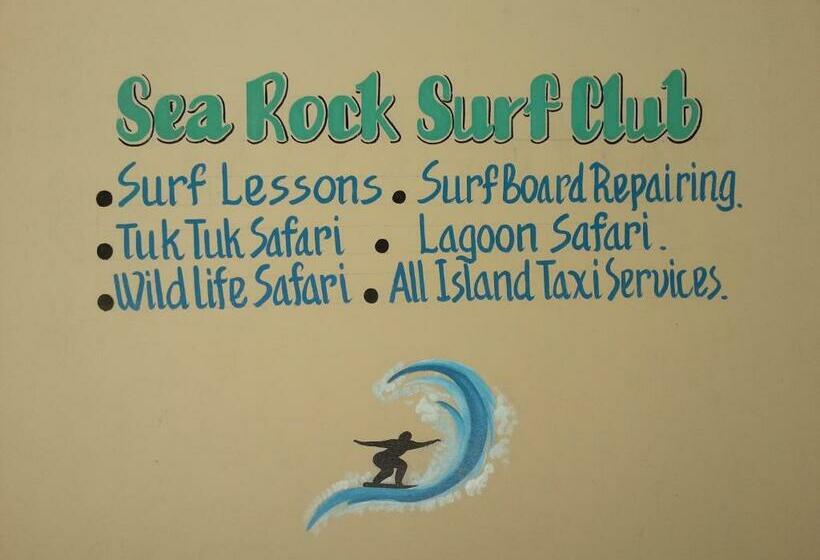 Sea Rock Surf Club
• Surf Lessons • SurfBoard Repairing.
• Tuk Tuk Safari • Lagoon Safari.
• Wild life Safari • All Island Taxi Services.